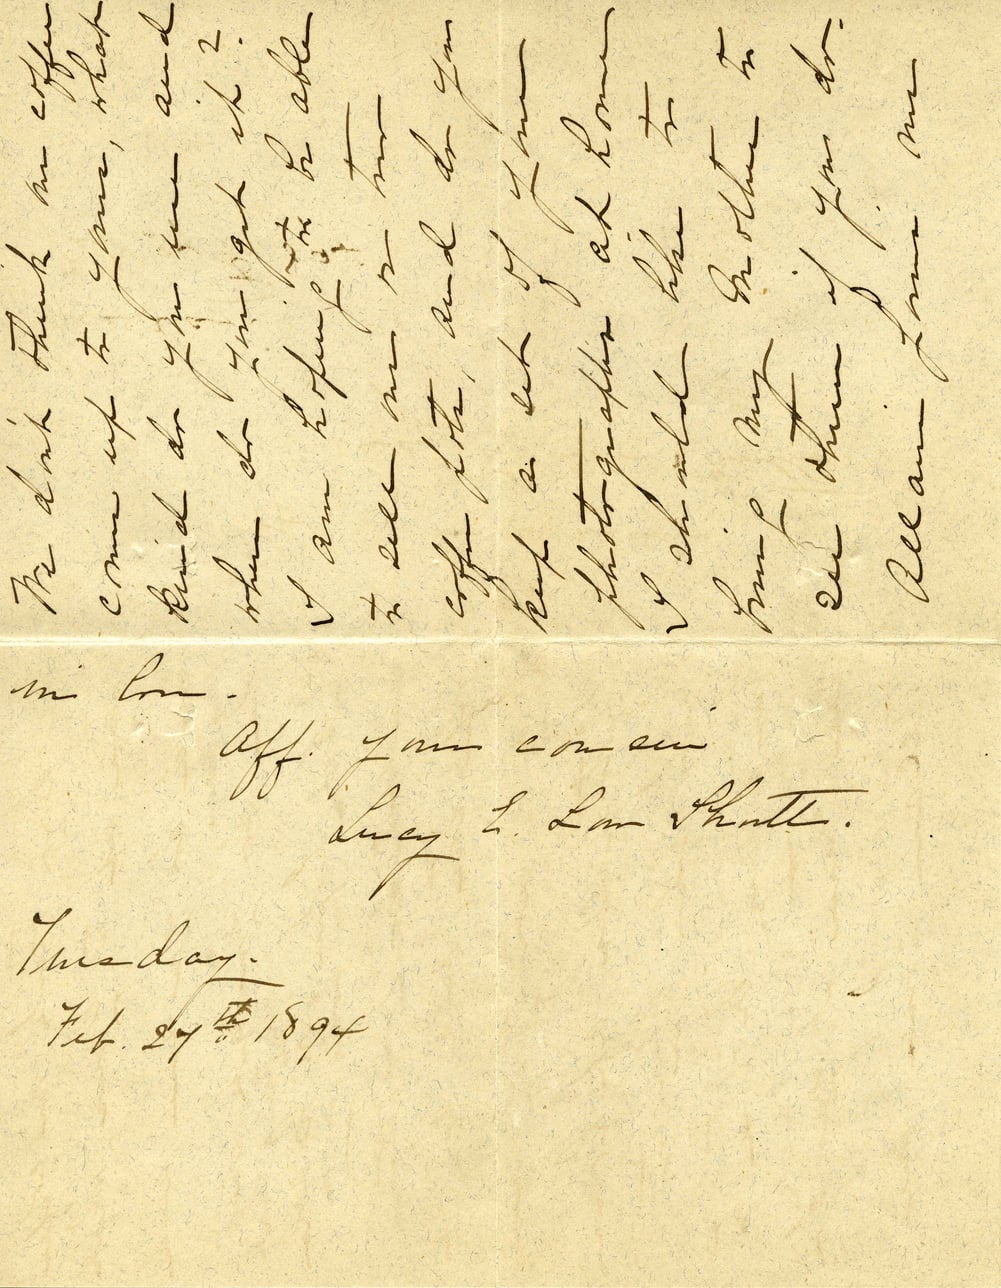 We don't think our coffee
come up to yours, what
kind do you use and
where do you get it?
I am hoping to be able
to sell one or two
coffee pots, and do you
keep a set of your
photographs at home
I should like to
bring my Mother to
see them if you do.
All am your
in love.
Aff. your cousin
Lucy E. Low Shott.
Tuesday.
Feb. 27th 1894